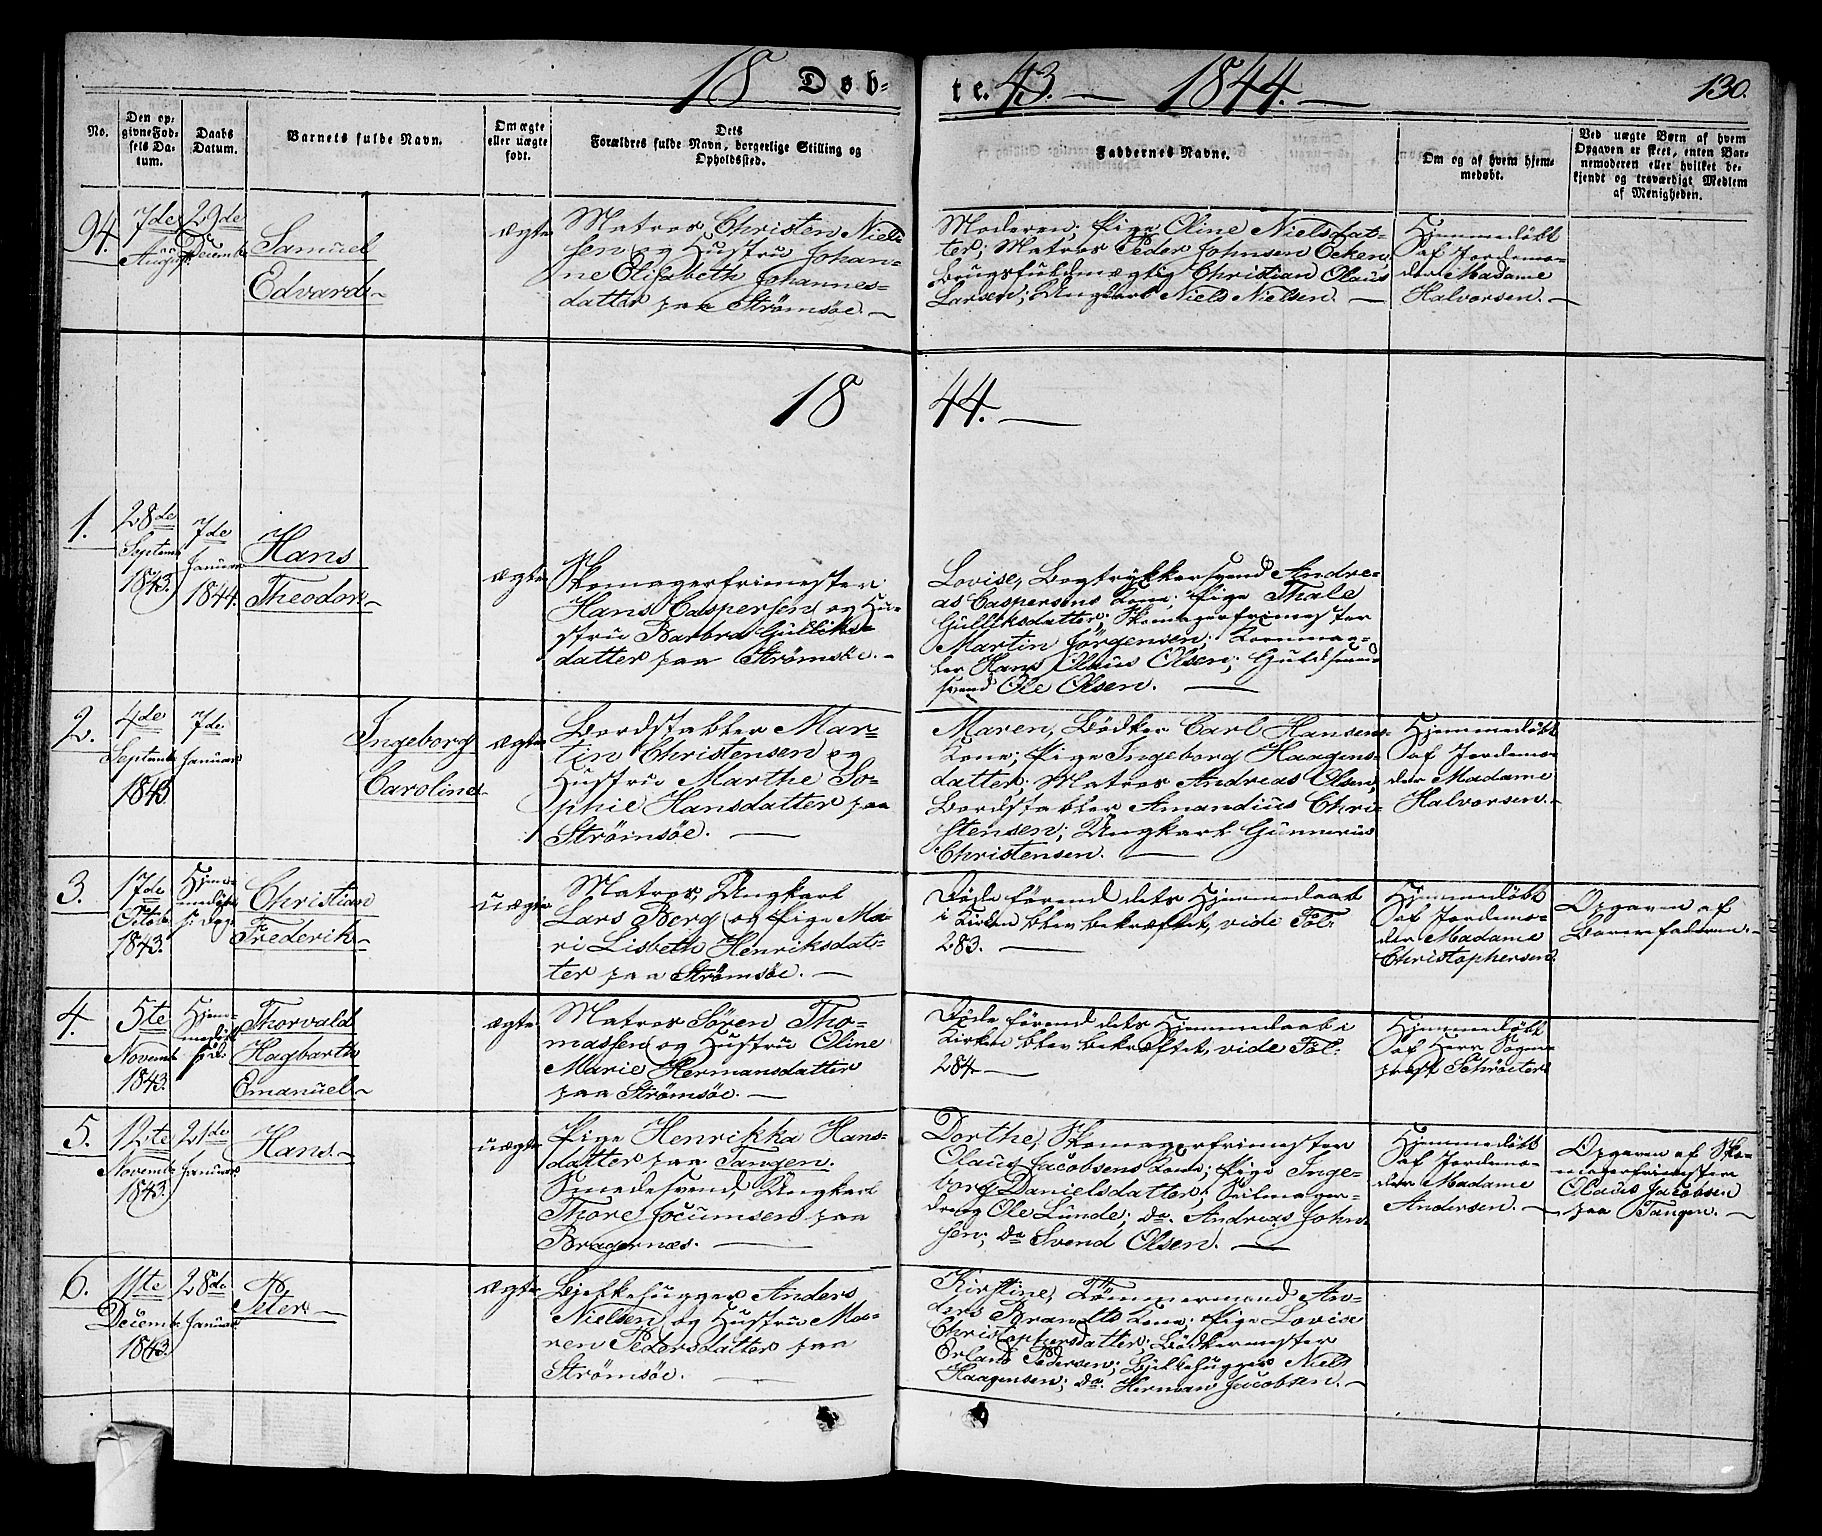 18 Døb-
te. 43. — 1844. —
130.
No.
Den op-
givne Fød-
sels Da-
tum.
Daabs
Datum.
Barnets fulde Navn.
Om ægte
eller uægte
født.
Dets
Forældres fulde Navn, borgerlige Stilling og
Opholdssted.
Faddernes Navne.
Om og af hvem hjem-
medøbt.
Ved uægte Børn af hvem
Opgaven er skeet, enten Bar-
nemoderen eller hvilket be-
kjendt og troværdigt Medlem
af Menigheden.
94.
7de
August
29de
Decemb.
Samuel
Edvard. –
ægte
Matros Christen Niel-
sen og Hustru Johan-
ne Elisabeth Johannes-
datter paa Strømsøe. –
Moderen; Pige Oline Nielsdat-
ter; Matros Peder Johnsen Eeken,
Brugsfuldmægtig Christian Olaus
Larsen; Ungkarl Niels Nielsen. –
Hjemmedøbt
af Jordemo-
der Madame
Halvorsen. –
18 44. –
1.
28de
Septemb.
1843.
7de
Januar
1844.
Hans
Theodor. –
ægte
Skomagerfrimester
Hans Caspersen og Hu-
stru Barbra Gulliks-
datter paa Strømsøe. –
Lovise, Bogtrykkersvend Andre-
as Caspersens Kone; Pige Thale
Gulliksdatter; Skomagerfrimester
Martin Jörgensen; Kornmaa-
ler Hans Olaus Olsen; Guldsmed-
svend Ole Olsen. —
2.
4de
Septemb.
1843.
7de
Januar
Ingeborg
Caroline. –
ægte
Bordstabler Mar-
tin Christensen og
Hustru Marthe So-
phie Hansdatter paa
Strømsøe. —
Maren, Bödker Carl Hansens
Kone; Pige Ingeborg Haagens-
datter; Matros Andreas Olsen;
Bordstabler Amandius Chri-
stensen; Ungkarl Gunnerius
Christensen. —
Hjemmedøbt
af Jordemo-
der Madame
Halvorsen. –
3.
17de
Octob.
1843.
Hjem-
medøbt
s. Dag.
Christian
Frederik. –
uægte
Matros, Ungkarl
Lars Berg og Pige Ma-
ri Lisbeth Henriksdat-
ter paa Strømsøe. –
Døde førend dets Hjemmedaab
i Kirken blev bekræftet, vide Fol.
283. —
Hjemmedøbt
af Jordemo-
der Madame
Christophersen.
Opgaven af
Barnefaderen. –
4.
5te
Novemb.
1843.
Hjem-
medøbt
s. D.
Thorvald
Hagbarth
Emanuel. –
ægte
Matros Sören Tho-
massen og Hustru Oline
Marie Hermansdatter
paa Strømsøe. –
Døde førend dets Hjemmedaab i
Kirken blev bekræftet, vide Fol.
284. —
Hjemmedøbt
af Herr Sogne-
præst Schröeter.
5.
12te
Novemb.
1843.
21de
Januar
Hans. –
uægte
Pige Henrikka Hans-
datter paa Tangen.
Smedesvend, Ungkarl
Thore Jocumsen paa
Bragernæs. —
Dorthe, Skomagerfrimester
Olaus Jacobsens Kone; Pige Inge-
borg Danielsdatter; Seilmager-
dreng Ole Lunde; do. Andreas John-
sen; do Svend Olsen. —
Hjemmedøbt
af Jordemo-
der Madame
Andersen. –
Opgaven af Sko-
magerfrimester
Olaus Jacobsen
paa Tangen. –
6.
11te
Decemb.
1843.
28de
Januar
Peter. –
ægte
Bjelkehugger Anders
Nielsen og Hustru Ma-
ren Pedersdatter paa
Strømsøe. —
Kirstine, Tömmermand An-
ders Brandts Kone; Pige Lovise
Christophersdatter; Bödkermester
Erland Pedersen; Bjelkehugger Niels
Haagensen; do. Herman Jacobsen. –